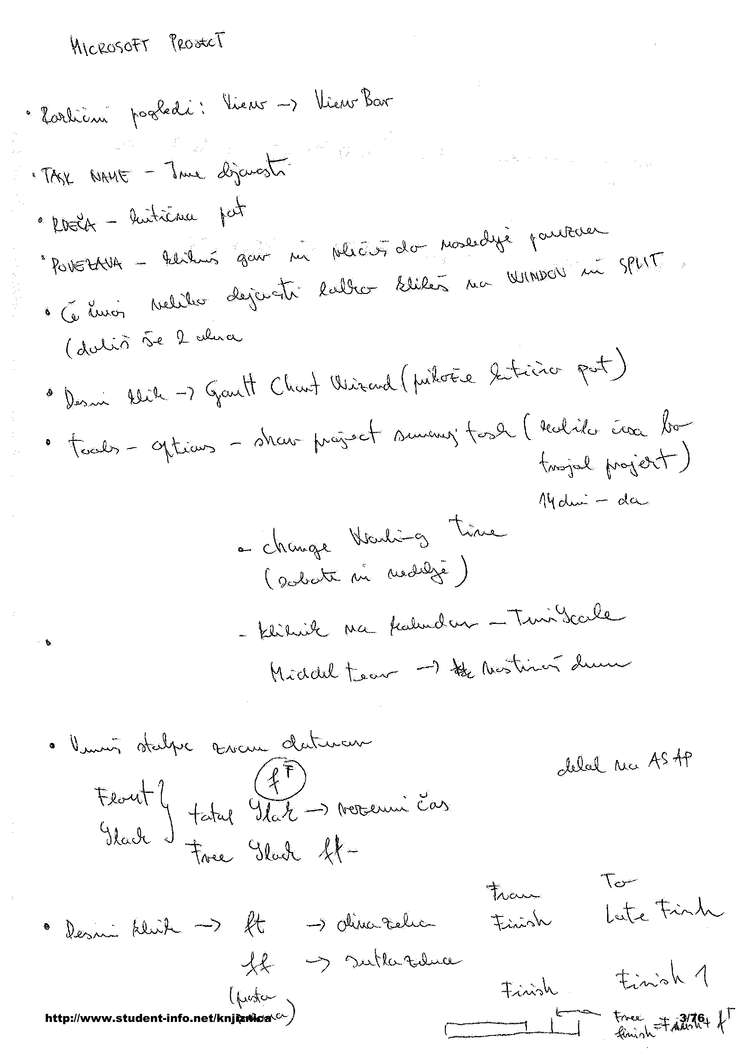 MICROSOFT PROJECT
• Različni pogledi: View → View Bar
• TASK NAME – Ime dejavnosti
• RDEČA – kritična pot
• POVEZAVA – klikneš gor in vlečeš do naslednje
• Če imaš veliko dejavnosti lahko klikneš na WINDOV in SPLIT
(dobiš še 2 okna
• Desni klik → Gantt Chart Wizard (prikaže kritično pot)
• Tools – options – show project summary task (koliko časa bo
trajal projekt)
14 dni – da
– change Working time
(sobote in nedelje)
•
– klikneš na kalendar – TimeScale
Middel tear →
• Vrineš stolpec datumov
delal na ASAP
fT
Float
Slack
total Slak → rezervni čas
Free Slack ff –
From To
• Desni klik → ft → Finish Late Finsh
ff → svetlozelena Finish Finish 1
(pusta
Free
finish = Finish + fT
http://www.student-info.net/knjiznica
3/76